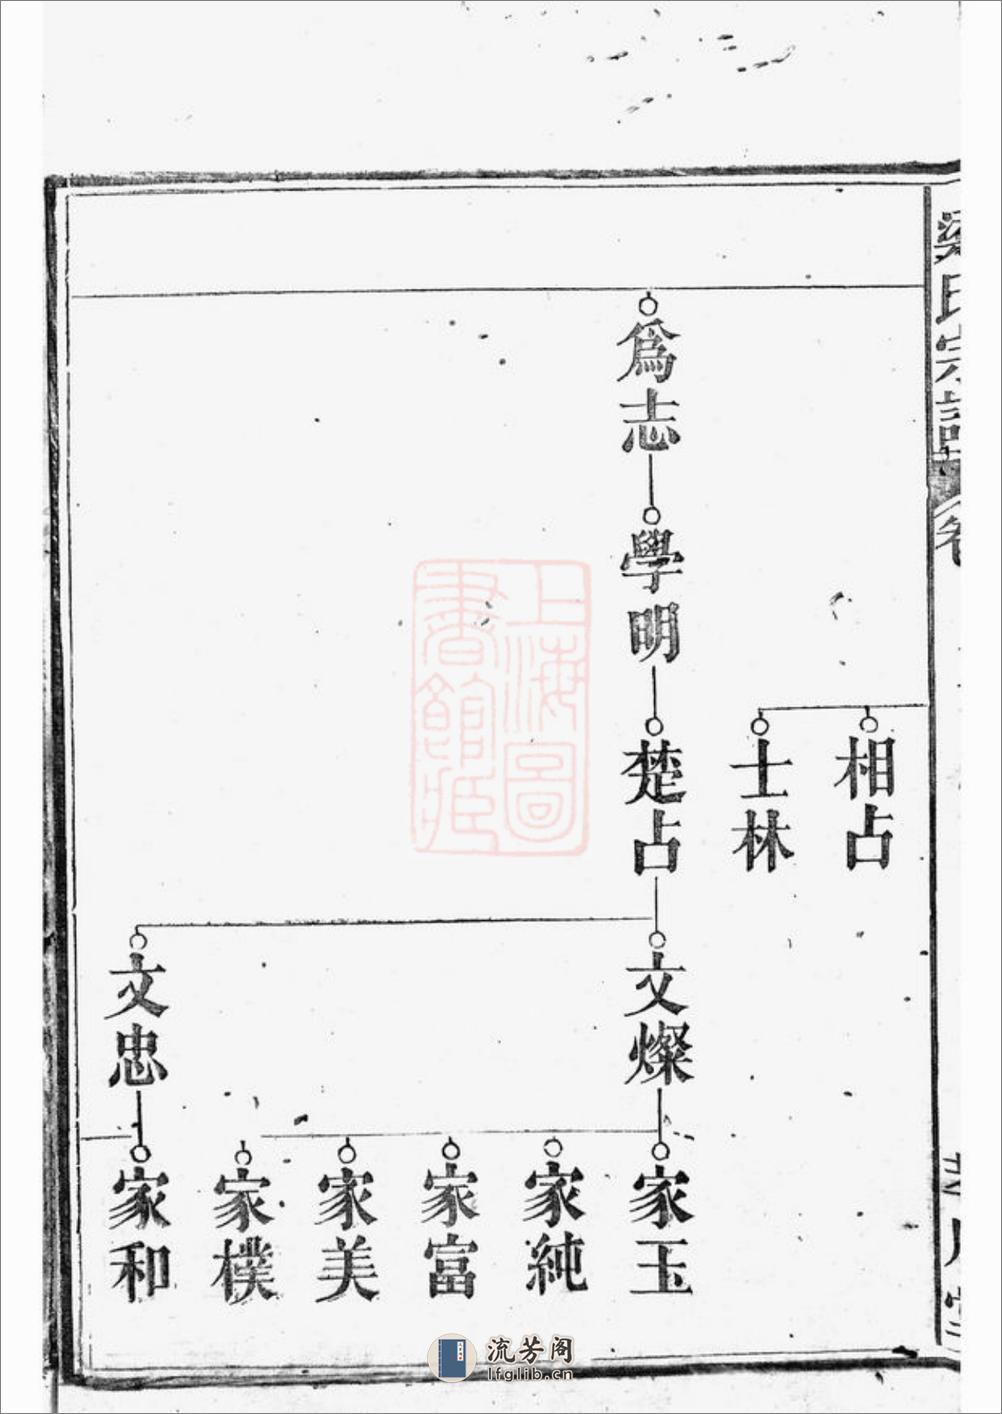 氏宗譜
相占
士林
爲志
學明
楚占
文燦
文忠
家玉
家純
家富
家美
家樸
家和
上海圖
書館藏
流芳阁
lfglib.cn